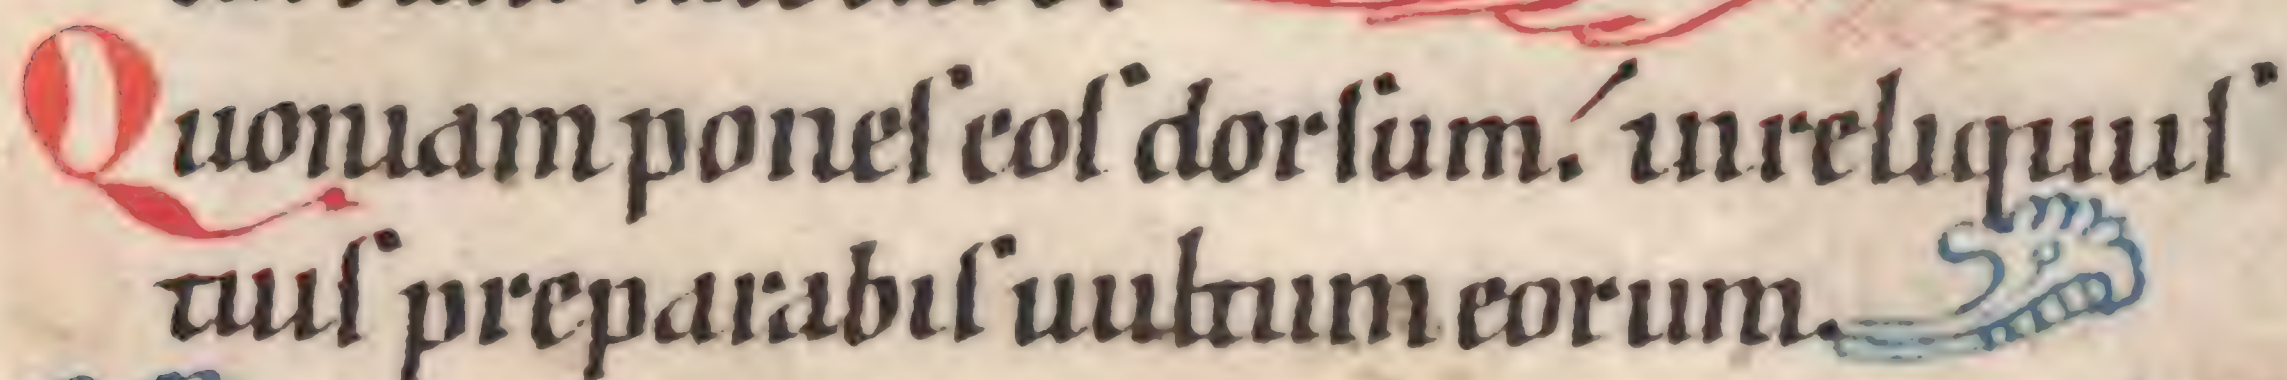 Quoniam poneſ eoſ dorſum. in reliquiiſ
tuiſ preparabiſ uultum eorum.